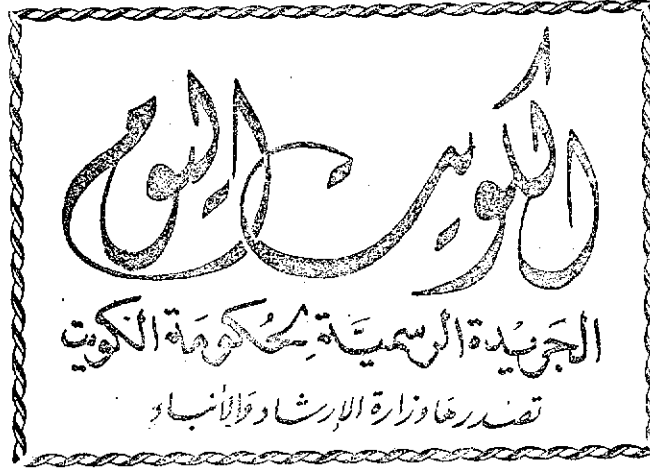 الكويت اليوم
الجريدة الرسمية لحكومة الكويت
تصدرها وزارة الإرشاد والأنباء